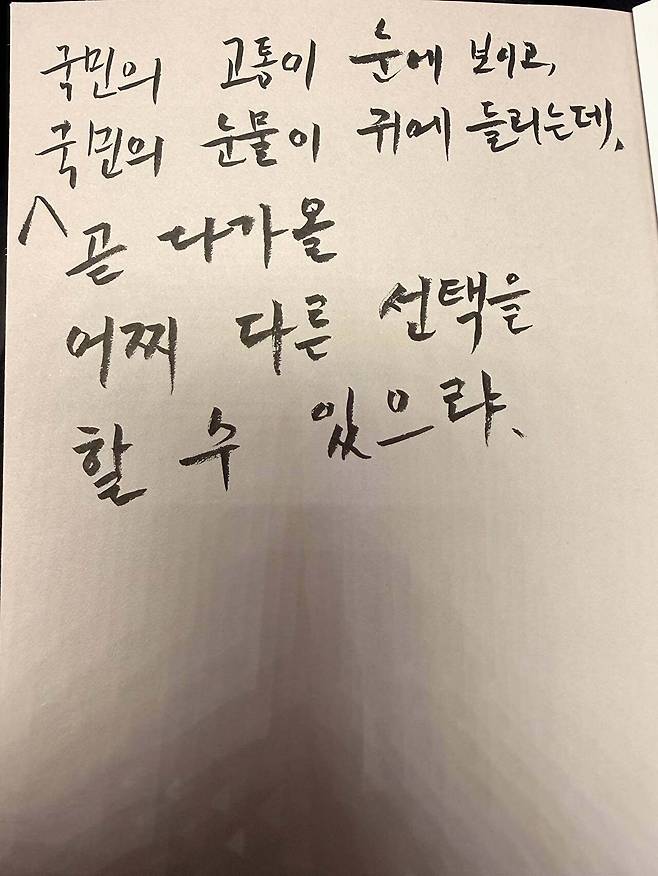 국민의 고통이 눈에 보이고,
국민의 눈물이 귀에 들리는데,
^곧 다가올
어찌 다른 선택을
할 수 있으랴.